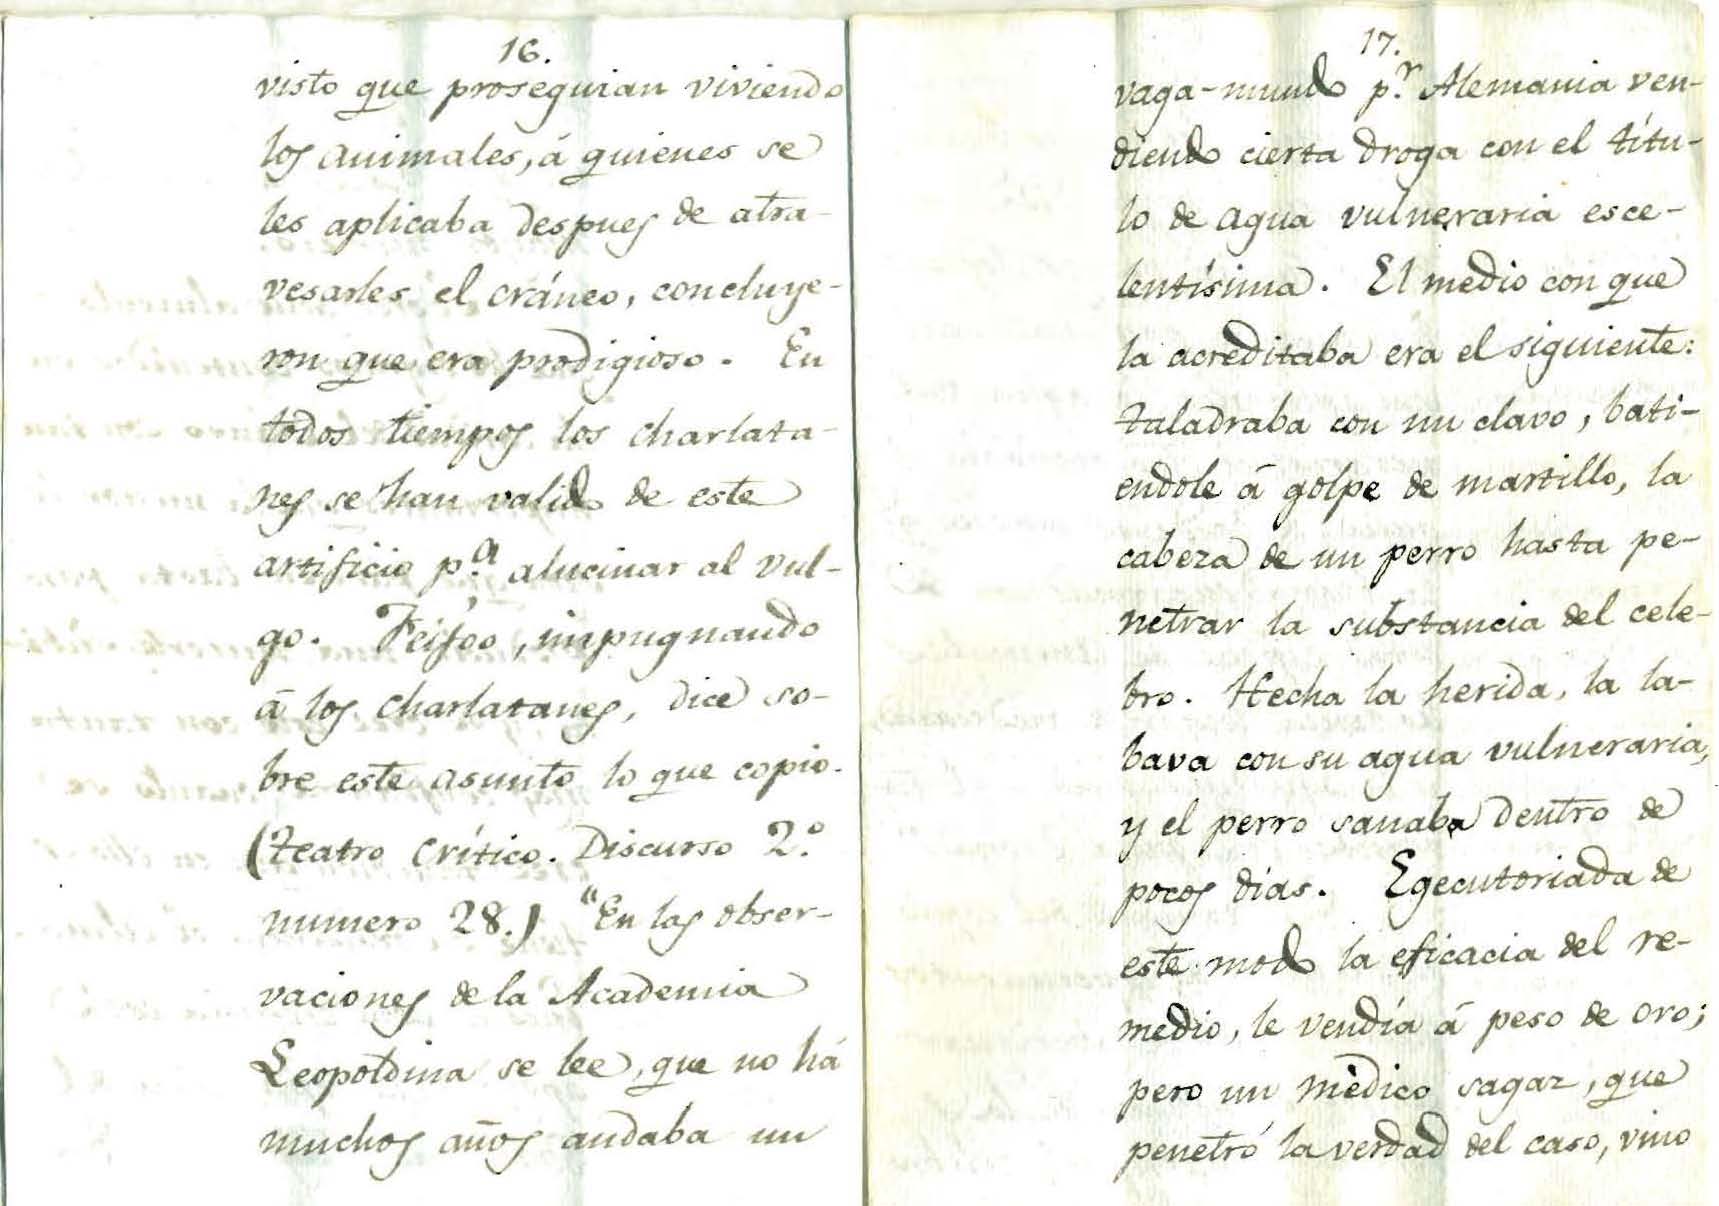 16.
visto que proseguian viviendo
los animales, á quienes se
les aplicaba despues de atra-
vesarles el cráneo, concluye-
ron que era prodigioso. En
todos tiempos los charlata-
nes se han valido de este
artificio p.a alucinar al vul-
go. Feijoo, impugnando
á los charlatanes, dice so-
bre este asunto lo que copio.
(Teatro Crítico. Discurso 2.o
numero 28.) "En las obser-
vaciones de la Academia
Leopoldina se lee, que no há
muchos años andaba un
17.
vaga-mundo p.r Alemania ven-
diendo cierta droga con el títu-
lo de agua vulneraria esce-
lentísima. El medio con que
la acreditaba era el siguiente:
taladraba con un clavo, bati-
endole á golpe de martillo, la
cabeza de un perro hasta pe-
netrar la substancia del cele-
bro. Hecha la herida, la la-
bava con su agua vulneraria,
y el perro sanaba dentro de
pocos días. Egecutoriada de
este modo la eficacia del re-
medio, le vendía á peso de oro;
pero un médico sagaz, que
penetró la verdad del caso, vino